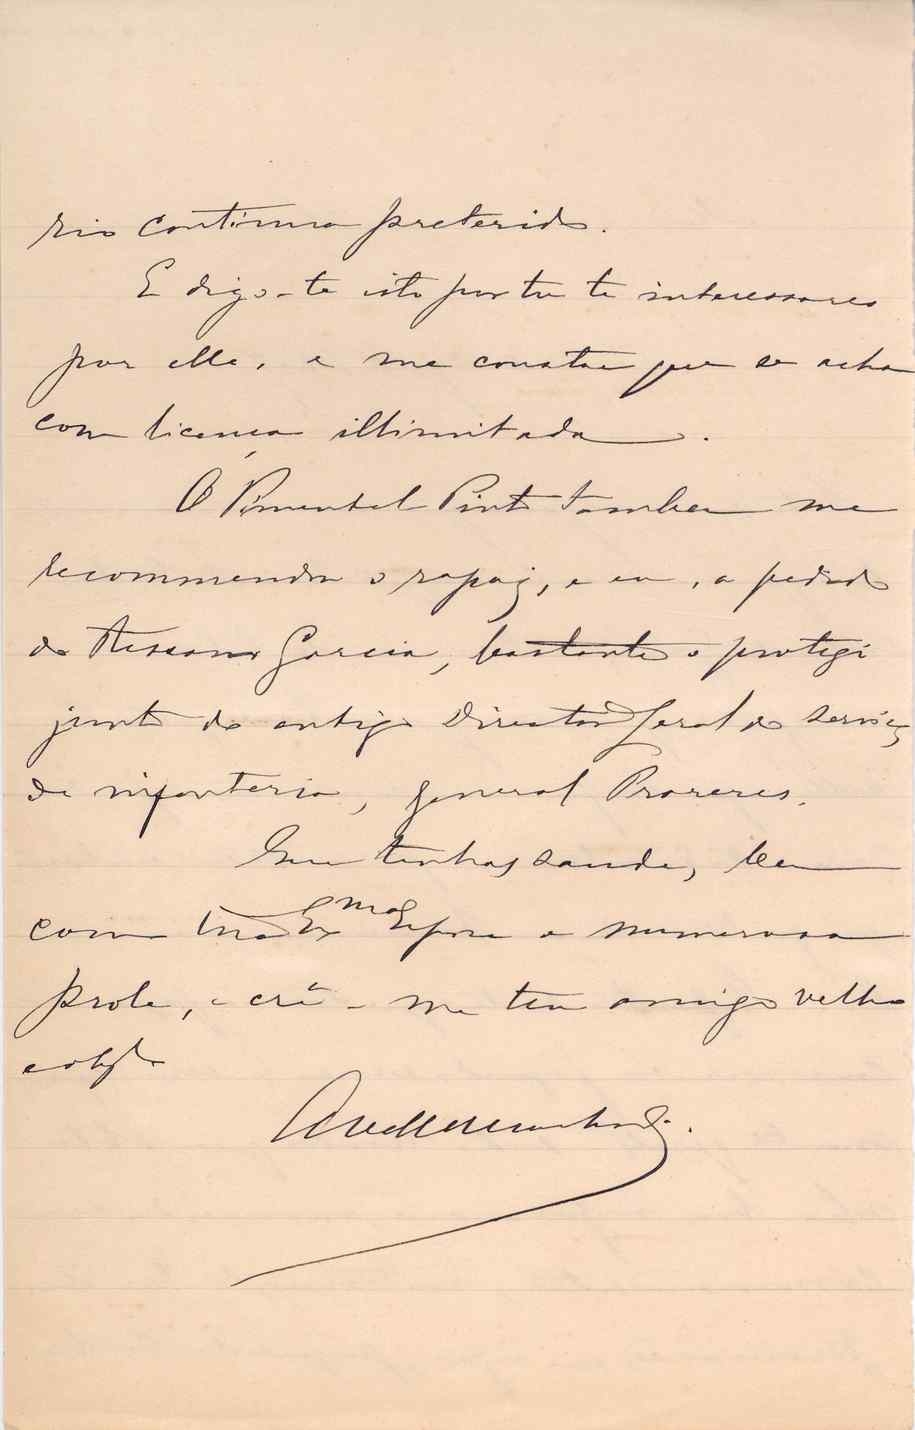 rio continua preterido.
E digo-te isto por tu te interessares
por elle, e me constar que se acha
com licença illimitada.
O Pimentel Pinto tambem me
recommendou o rapaz, e eu, a pedido
do Ressano Garcia, bastante o protegi
junto do antigo Director Geral do serviço
de infanteria, general Prazeres.
Que tenhas saude, bem
como tua Ex.ma Esposa e numerosa
prole, e crê-me teu amigo velho